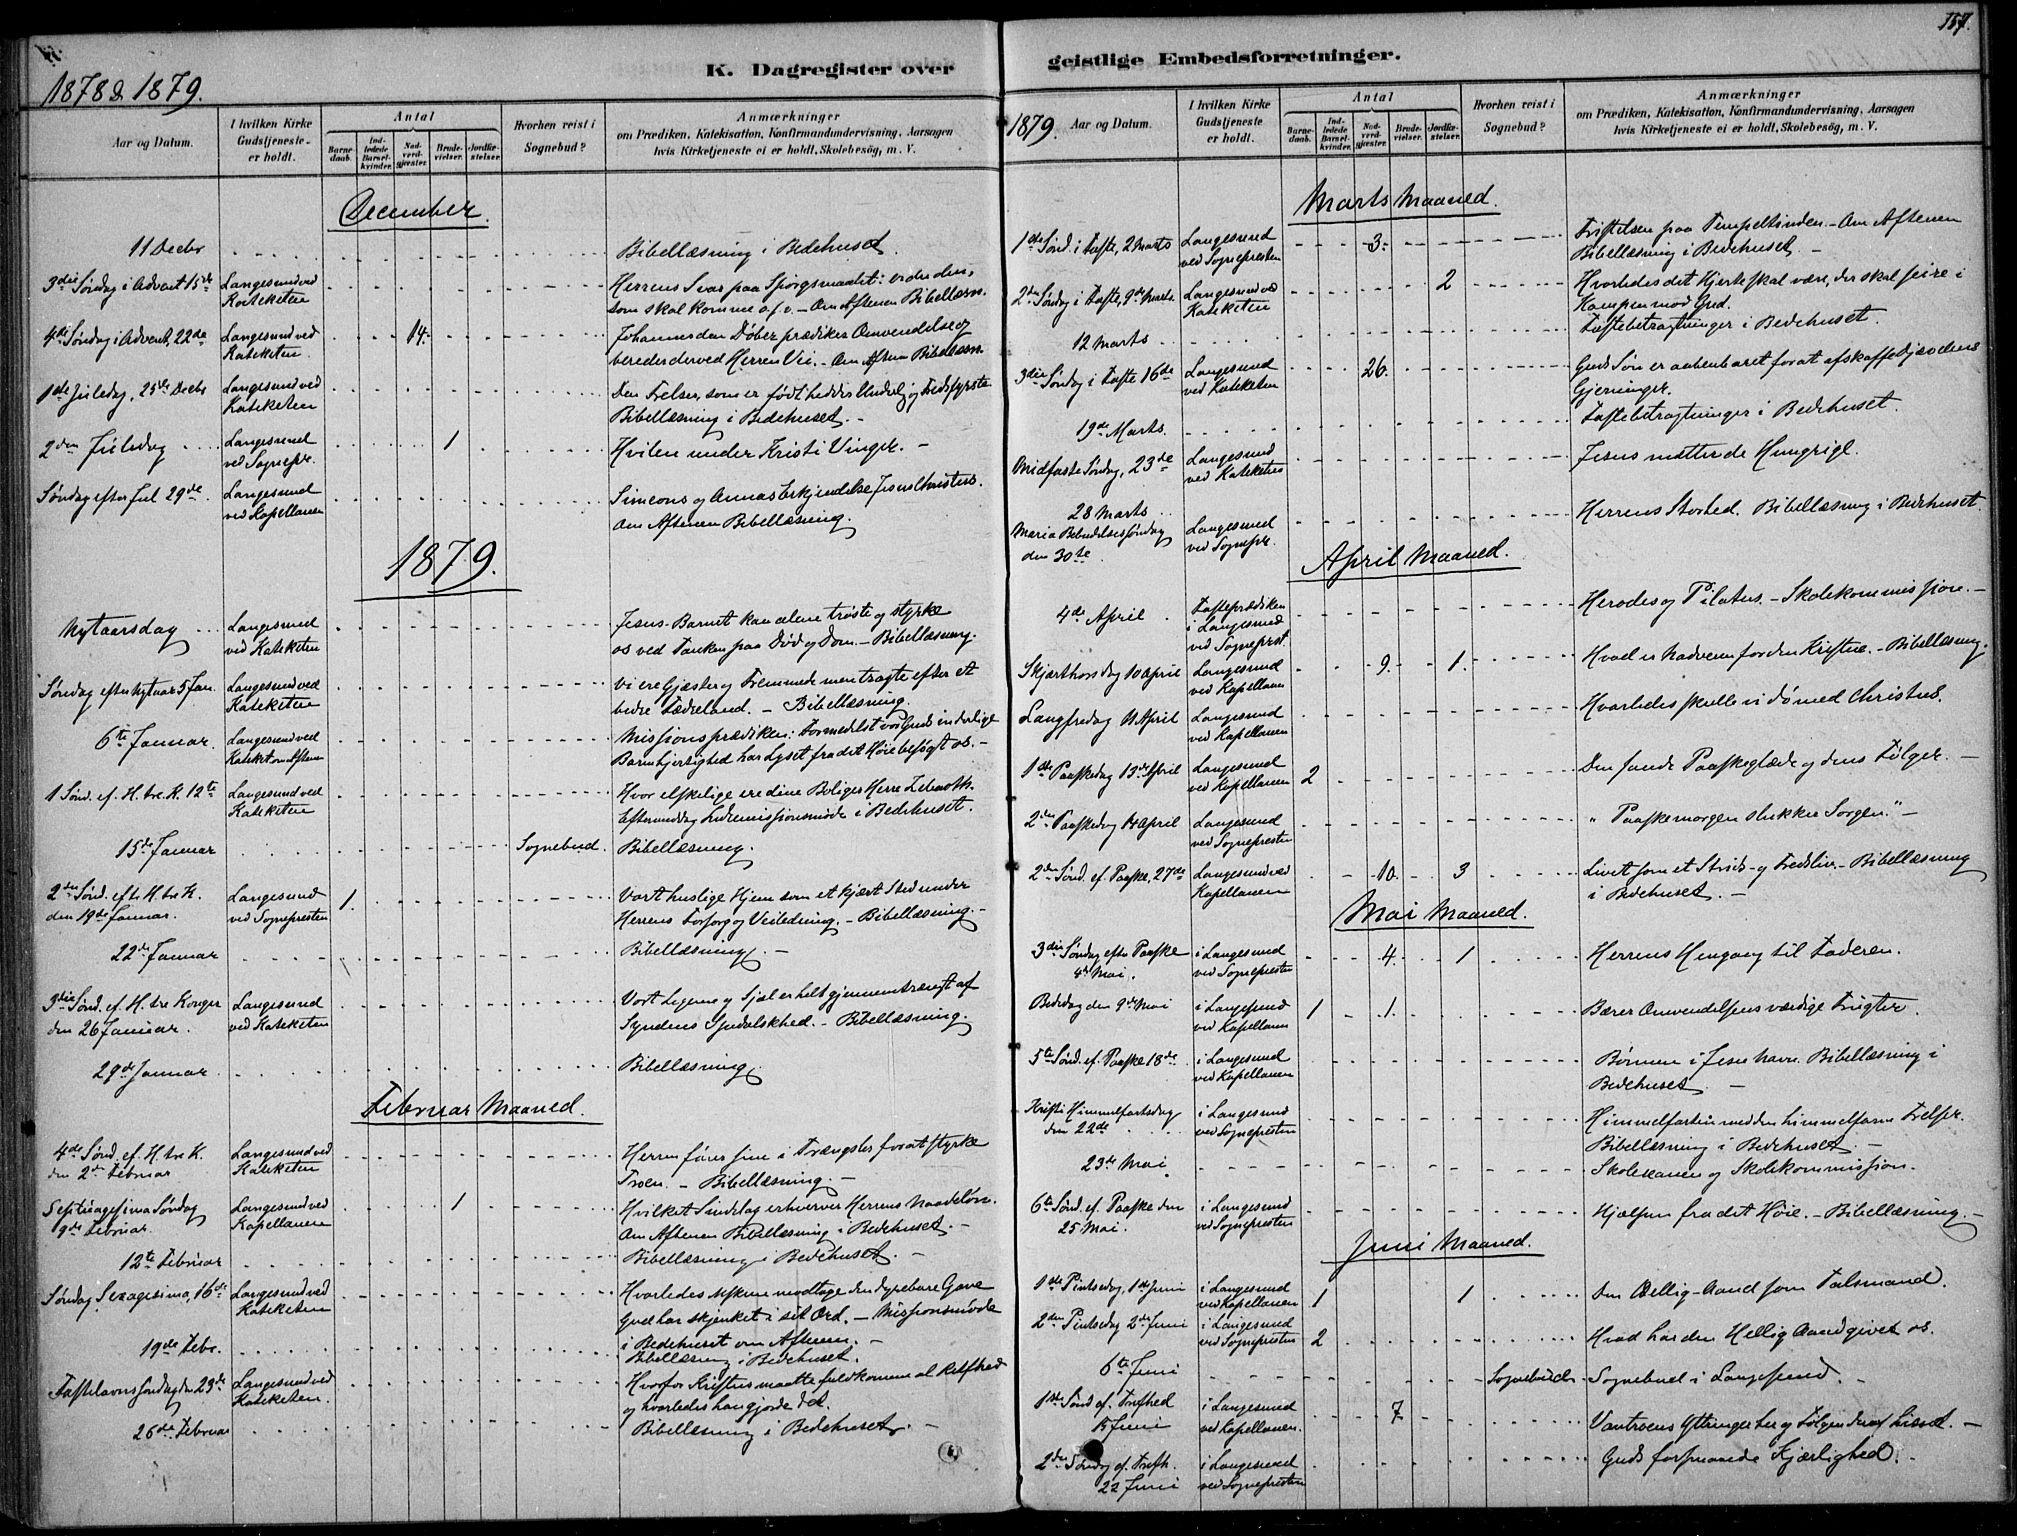 K. Dagregister over
1878 & 1879.
Aar og Datum.
I hvilken Kirke Gudstjeneste er holdt.
Antal
Barnedaab.
Indledede Barselkvinder.
Nadverdgjester.
Brudevielser.
Jordfæstelser.
Hvorhen reist i Sognebud?
Anmærkninger
om Prædiken, Katekisation, Konfirmandundervisning, Aarsagen
hvis Kirketjeneste ei er holdt, Skolebesøg, m. V.
December.
11 Decbr Bibellæsning i Bedehuset.
3die Søndag i Advent 15de Langesund ved Kateketen Herrens Svar paa Spørgsmaalet: er du den,
som skal komme o.s.v. – Om Aftenen Bibellæsn.
4de Søndag i Advent, 22de Langesund ved Kateketen. 14. Johannes den Døber prædiker Omvendelse og
bereder derved Herren Vei. – Om Aftenen Bibellæsn.
1ste Juledag, 25de Decbr Langesund ved Kateketen Den Frelser, som er født heder Underlig og Fredsfyrste
Bibellæsning i Bedehuset. –
2den Juledag Langesund ved Sognepr. 1 Hvilen under Kristi Vinger. –
Søndag efter Jul 29de Langesund ved Kapellanen Simeons og Annas Erkjendelse Jesus Christus.
Om Aftenen Bibellæsning.
1879.
Nytaarsdag Langesund ved Kateketen Jesus-Barnet kan alene trøste og styrke
os ved Tanken paa Død og Dom. – Bibellæsning.
Søndag efter Nytaar 5 Jan. Langesund ved Kateketen Vi ere Gjæster og Fremmede men tragte efter et
bedre Fædreland. – Bibellæsning.
6te Januar. Langesund ved Kateket om Aftenen Missionsprædiken: Formedelst vor Guds inderlige
Barmhjertighed har Lyset fra det Høie besøgt os. –
1 Sønd. ef. H. tre K. 12te Langesund ved Kateketen Hvor elskelige ere dine Boliger Herre Zebaoth.
Eftermiddag Indremissionsmøde i Bedehuset.
15de Januar Sognebud. Bibellæsning.
2den Sønd. eft. H. tre K. den 19de Januar. Langesund ved Sognepresten 1. Vort huslige Hjem som et kjært Sted under
Herrens Forsorg og Veiledning. – Bibellæsning. –
22de Januar Bibellæsning. –
3die Sønd. ef. H. tre Konger den 26 Januar. Langesund ved Kateketen Vort Legeme og Sjæl er helt gjennemtrængt af
Syndens Spedalskhed. – Bibellæsning.
29de Januar. Bibellæsning.
Februar Maaned.
4de Sønd. ef. H. tre K. den 2den Februar Langesund ved Kateketen Herren fører sine i Trængsler for at styrke
Troen. – Bibellæsning. –
Septuagesima Søndag 9de Februar. Langesund ved Kapellanen 1 Hvilket Sindelag erhverver Herrens Naadeløn.
Om Aftenen Bibellæsning i Bedehuset. –
12te Februar Bibellæsning i Bedehuset. –
Søndag Sexagesima, 16de Langesund ved Kateketen Hvorledes vi skulle modtage den dyrebare Gave
Gud har skjenket i sit Ord. – Missionsmøde
i Bedehuset om Aftenen. –
19de Febr. Bibellæsning i Bedehuset.
Fastelavns Søndag den 23de Langesund ved Kateketen. Hvorfor Kristus maatte fuldkomme al Retfhed
og hvorledes han gjorde det.
26de Februar Bibellæsning i Bedehuset. –
geistlige Embedsforretninger.
157.
1879.
Aar og Datum.
I hvilken Kirke Gudstjeneste er holdt.
Antal
Barnedaab.
Indledede Barselkvinder.
Nadverdgjester.
Brudevielser.
Jordfæstelser.
Hvorhen reist i Sognebud?
Anmærkninger
om Prædiken, Katekisation, Konfirmandundervisning, Aarsagen
hvis Kirketjeneste ei er holdt, Skolebesøg, m. V.
Marts Maaned.
1ste Sønd. i Faste, 2 Marts Langesund ved Sognepresten 3. Fristelsen paa Tempeltinden – Om Aftenen
Bibellæsning i Bedehuset –
2den Søndag i Faste, 9de Marts. Langesund ved Kateketen 2 Hvorledes det Hjerte skal være, der skal seire i
Kampen mod Gud.
12 Marts Fastebetragtninger i Bedehuset.
3die Søndag i Faste 16de Langesund ved Kateketen 26. Guds Søn er aabenbaret for at afskaffe Djævelens
Gjerninger.
19de Marts. Fastebetragtninger i Bedehuset.
Midfaste Søndag, 23de Langesund ved Kateketen Jesus mætter de Hungrige.
28 Marts
Maria Bebudelses Søndag den 30te Langesund ved Sognepr. Herrens Storhed. Bibellæsning i Bedehuset.
April Maaned.
4de April Fasteprædiken i Langesund ved Sogneprst. Herodes og Pilatus. – Skolekommission. –
Skjærthorsdag 10 April Langesund ved Kapellanen 9. 1. Hvad er Nadveren for den Kristne. – Bibellæsning.
Langfredag 11 April Langesund ved Kapellanen Hvorledes skulle vi dø med Christus.
1ste Paaskedag 13de April Langesund ved Kapellanen 2 Den sande Paaskeglæde og dens Følger. –
2den Paaskedag 14 April Langesund ved Sognepresten "Paaskemorgen slukker Sorgen." –
2den Sønd. ef. Paaske, 27de Langesund ved Kapellanen 10. 3 Livet som et Strids- og Fredsliv. – Bibellæsning
i Bedehuset. –
Mai Maaned.
3die Søndag efter Paaske 4de Mai. i Langesund ved Sognepresten 4. 1 Herrens Hengang til Faderen.
Bededag den 9de Mai i Langesund ved Kapellanen 1 1. Bærer Omvendelsens værdige Frugter.
5te Sønd. ef. Paaske 18de i Langesund ved Kapellanen Bønnen i Jesu Navn. Bibellæsning i
Bedehuset. –
Kristi Himmelfartsdag den 22de i Langesund ved Sognepresten Himmelfarten med den himmelfarne Frelser.
Bibellæsning i Bedehuset. –
23de Mai Skolexamen og Skolekommission.
6te Sønd. ef. Paaske den 25 Mai. i Langesund ved Sognepresten Hjælpen fra det Høie. – Bibellæsning. –
Juni Maaned.
1ste Pintsedag, 1ste Juni i Langesund ved Kapellanen 1 1 Den Hellig-Aand som Talsmand.
2den Pintsedag 2de Juni i Langesund ved Sognepresten 2 Hvad har den Hellig Aand givet os.
6te Juni Sognebud Sognebud i Langesund. –
1ste Sønd. ef. Trefhed 15 Juni i Langesund ved Kapellanen. 7 Vantroens Yttringer her og Følgen deraf hisset. –
2den Søndag ef. Trefh. 22 Juni i Langesund ved Sognepresten Guds Kjærlighed. –